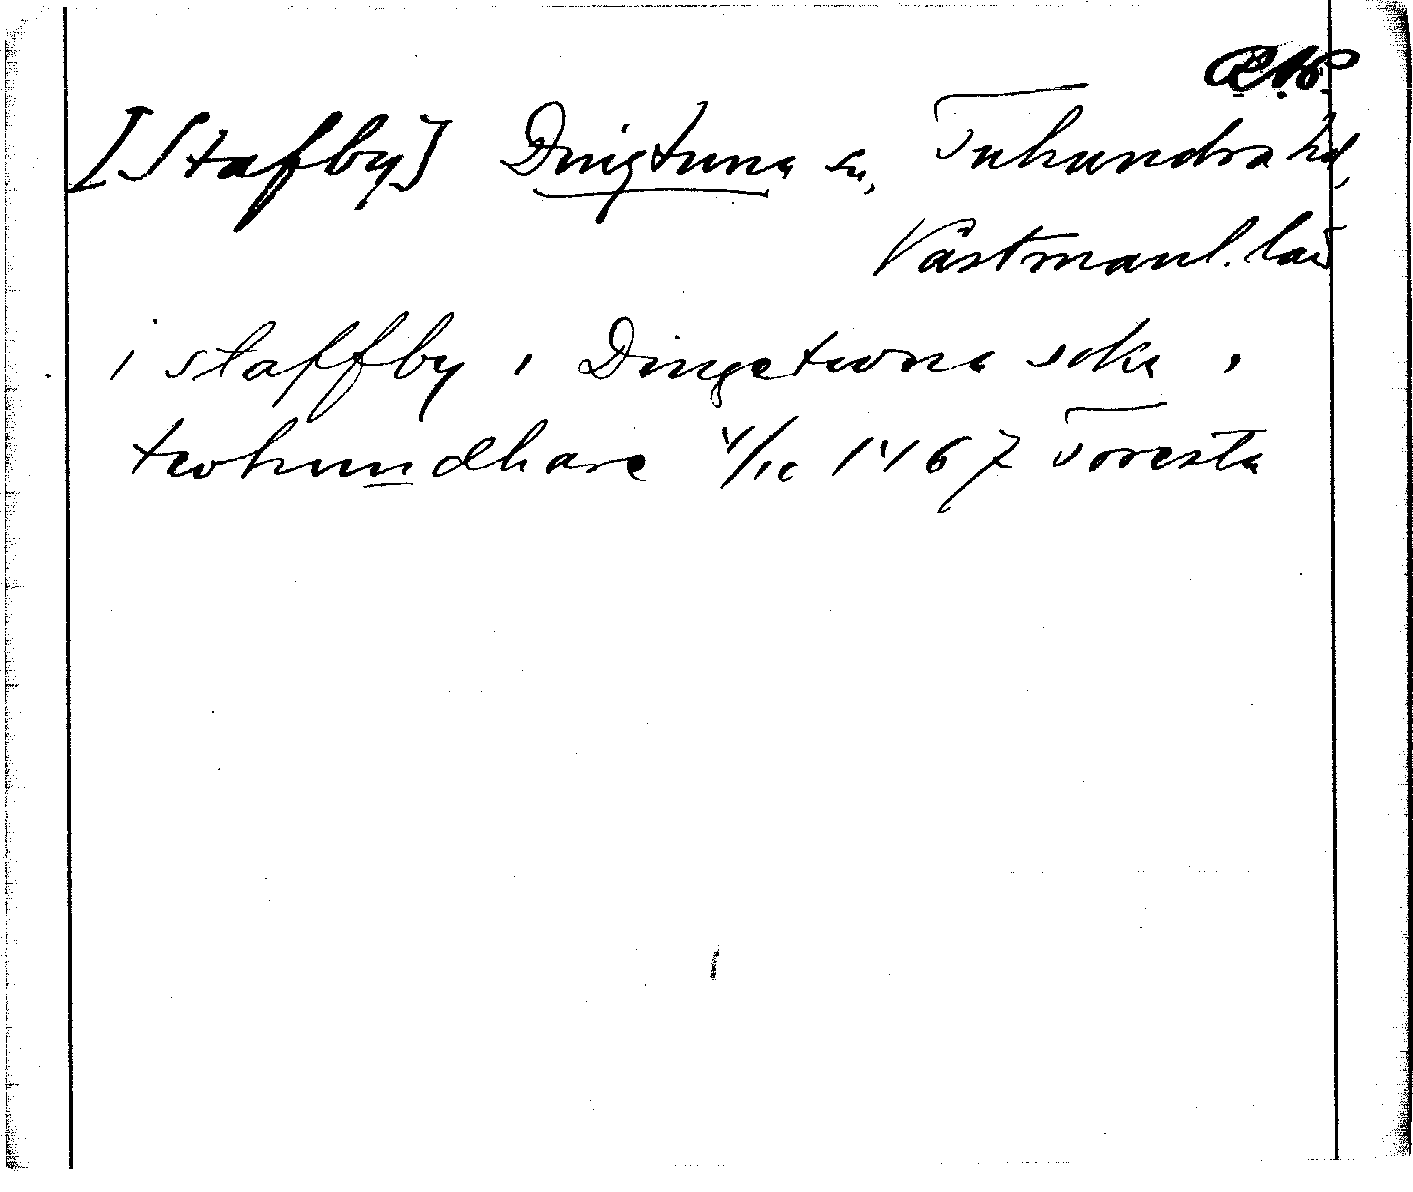 [Stafby] Dingtuna sn, Tuhundra hd,
Västmanl. län
i staffby i Dingetwna sokn i
twhundhare 4/10 1467 Toresta